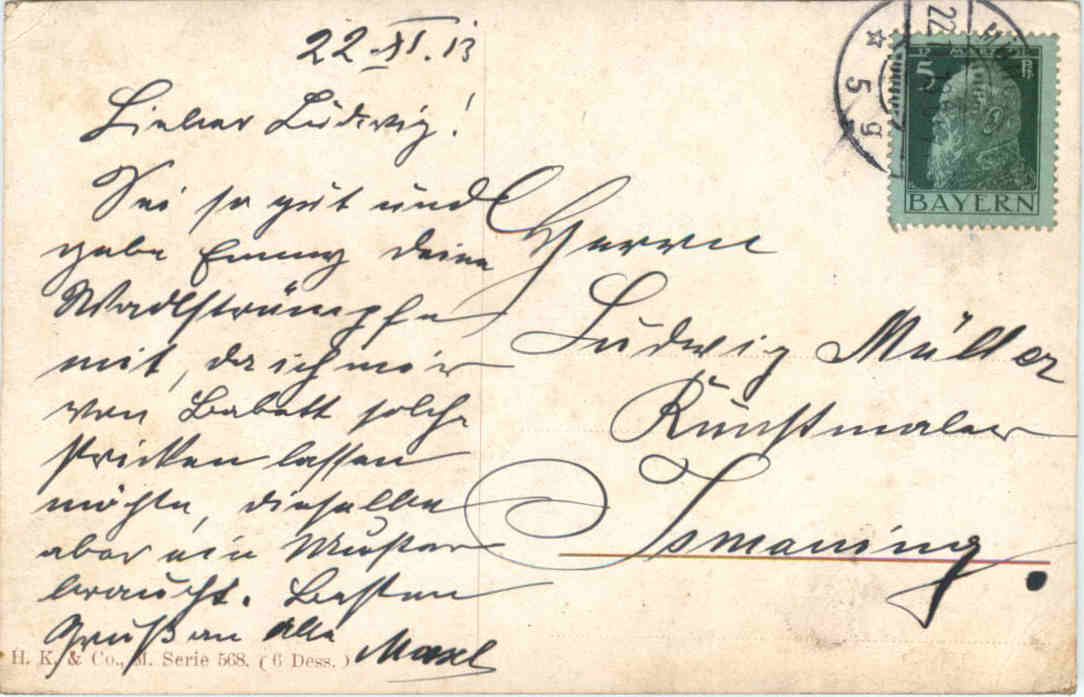 22.XI.13
Lieber Ludwig!
Sei so gut und
gebe Emmy deine
Wadlstrümpfe
mit, da ich mir
von Babett solche
stricken lassen
möchte, dieselbe
aber ein Muster
braucht. Besten
Gruß an alle
Maxl
Herrn
Ludwig Müller
Kunstmaler
Ismaning.
5 Pf
BAYERN
22
5
H. K. & Co., M. Serie 568. (6 Dess.)